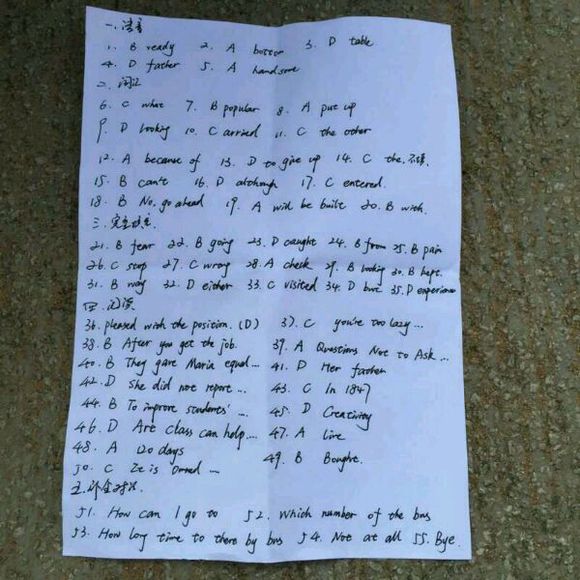 一. 语音
1. B ready 2. A bottom 3. D table
4. D father 5. A handsome
二. 词汇
6. C what 7. B popular 8. A put up
9. D looking 10. C arried 11. C the other
12. A because of 13. D to give up 14. C the,不填
15. B can't 16. D although 17. C entered
18. B No, go ahead 19. A will be built 20. B with.
三. 完型填空
21. B fear 22. B going 23. D caught 24. B from 25. B pain
26. C stop 27. C wrong 28. A check 29. B looking 30. B kept.
31. B way 32. D either 33. C visited 34. D but 35. D experience
四. 阅读
36. pleased with the position. (D) 37. C you're too lazy ...
38. B After you get the job. 39. A Questions Not to Ask ...
40. B They gave Maria equal ... 41. D Her father
42. D She did not report ... 43. C In 1847
44. B To improve students' ... 45. D Creativity
46. D Art class can help ... 47. A Live
48. A 120 days 49. B Bought.
50. C It is Owned ...
五. 补全对话.
51. How can I go to 52. Which number of the bus
53. How long time to there by bus 54. Not at all 55. Bye.